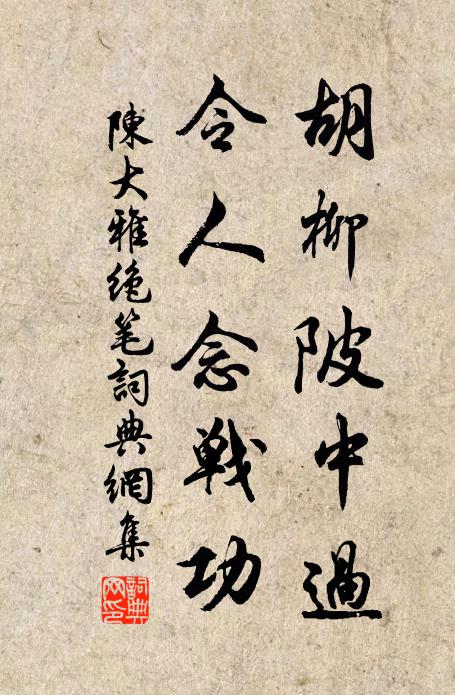 胡柳陂中過
令人念戰功
陳大雅绝笔詞典網集
詞典網印